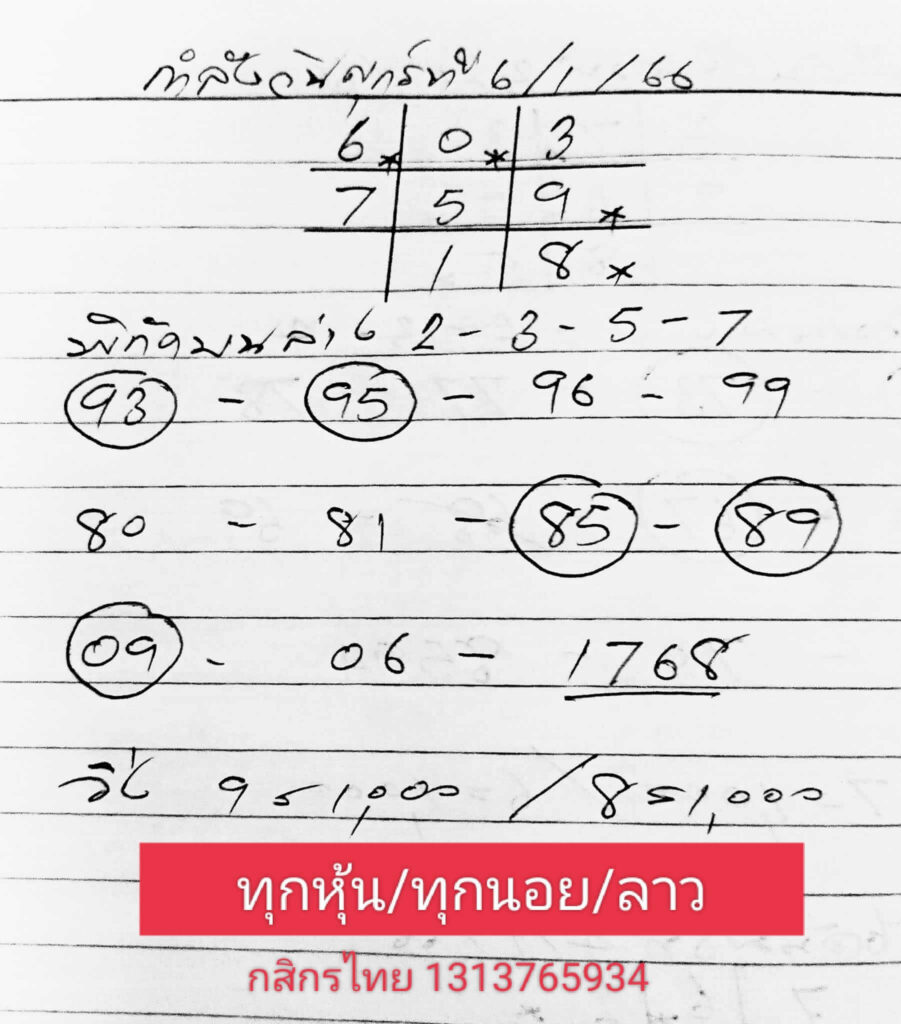 กำลังวันศุกร์ที่ 6/1/66
6* 0* 3
7 5 9*
1 8*
พิกัดบนล่าง 2-3-5-7
93 - 95 - 96 - 99
80 - 81 - 85 - 89
09 - 06 - 1768
วิ่ง 9=1,000/8=1,000
ทุกหุ้น/ทุกนอย/ลาว
กสิกรไทย 1313765934